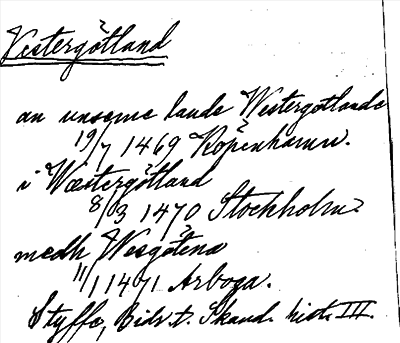 Vestergötland
an unserne lande Westergotlande
19/7 1469 Köpenhamn.
i Wæstergötland
8/03 1470 Stockholm.
medh Wesgötena
11/1 1471 Arboga.
Styffe, Bidr. t. Skand. hist. III.